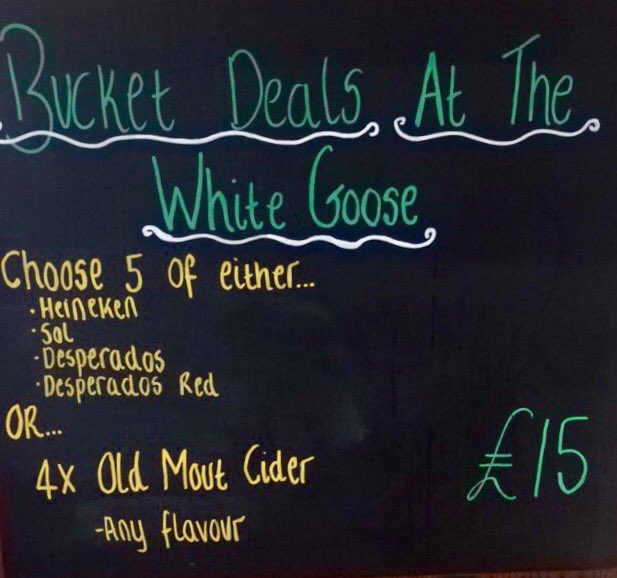 Bucket Deals At The
White Goose
Choose 5 of either...
· Heineken
· Sol
· Desperados
· Desperados Red
OR...
4x Old Mout Cider
£15
-Any flavour